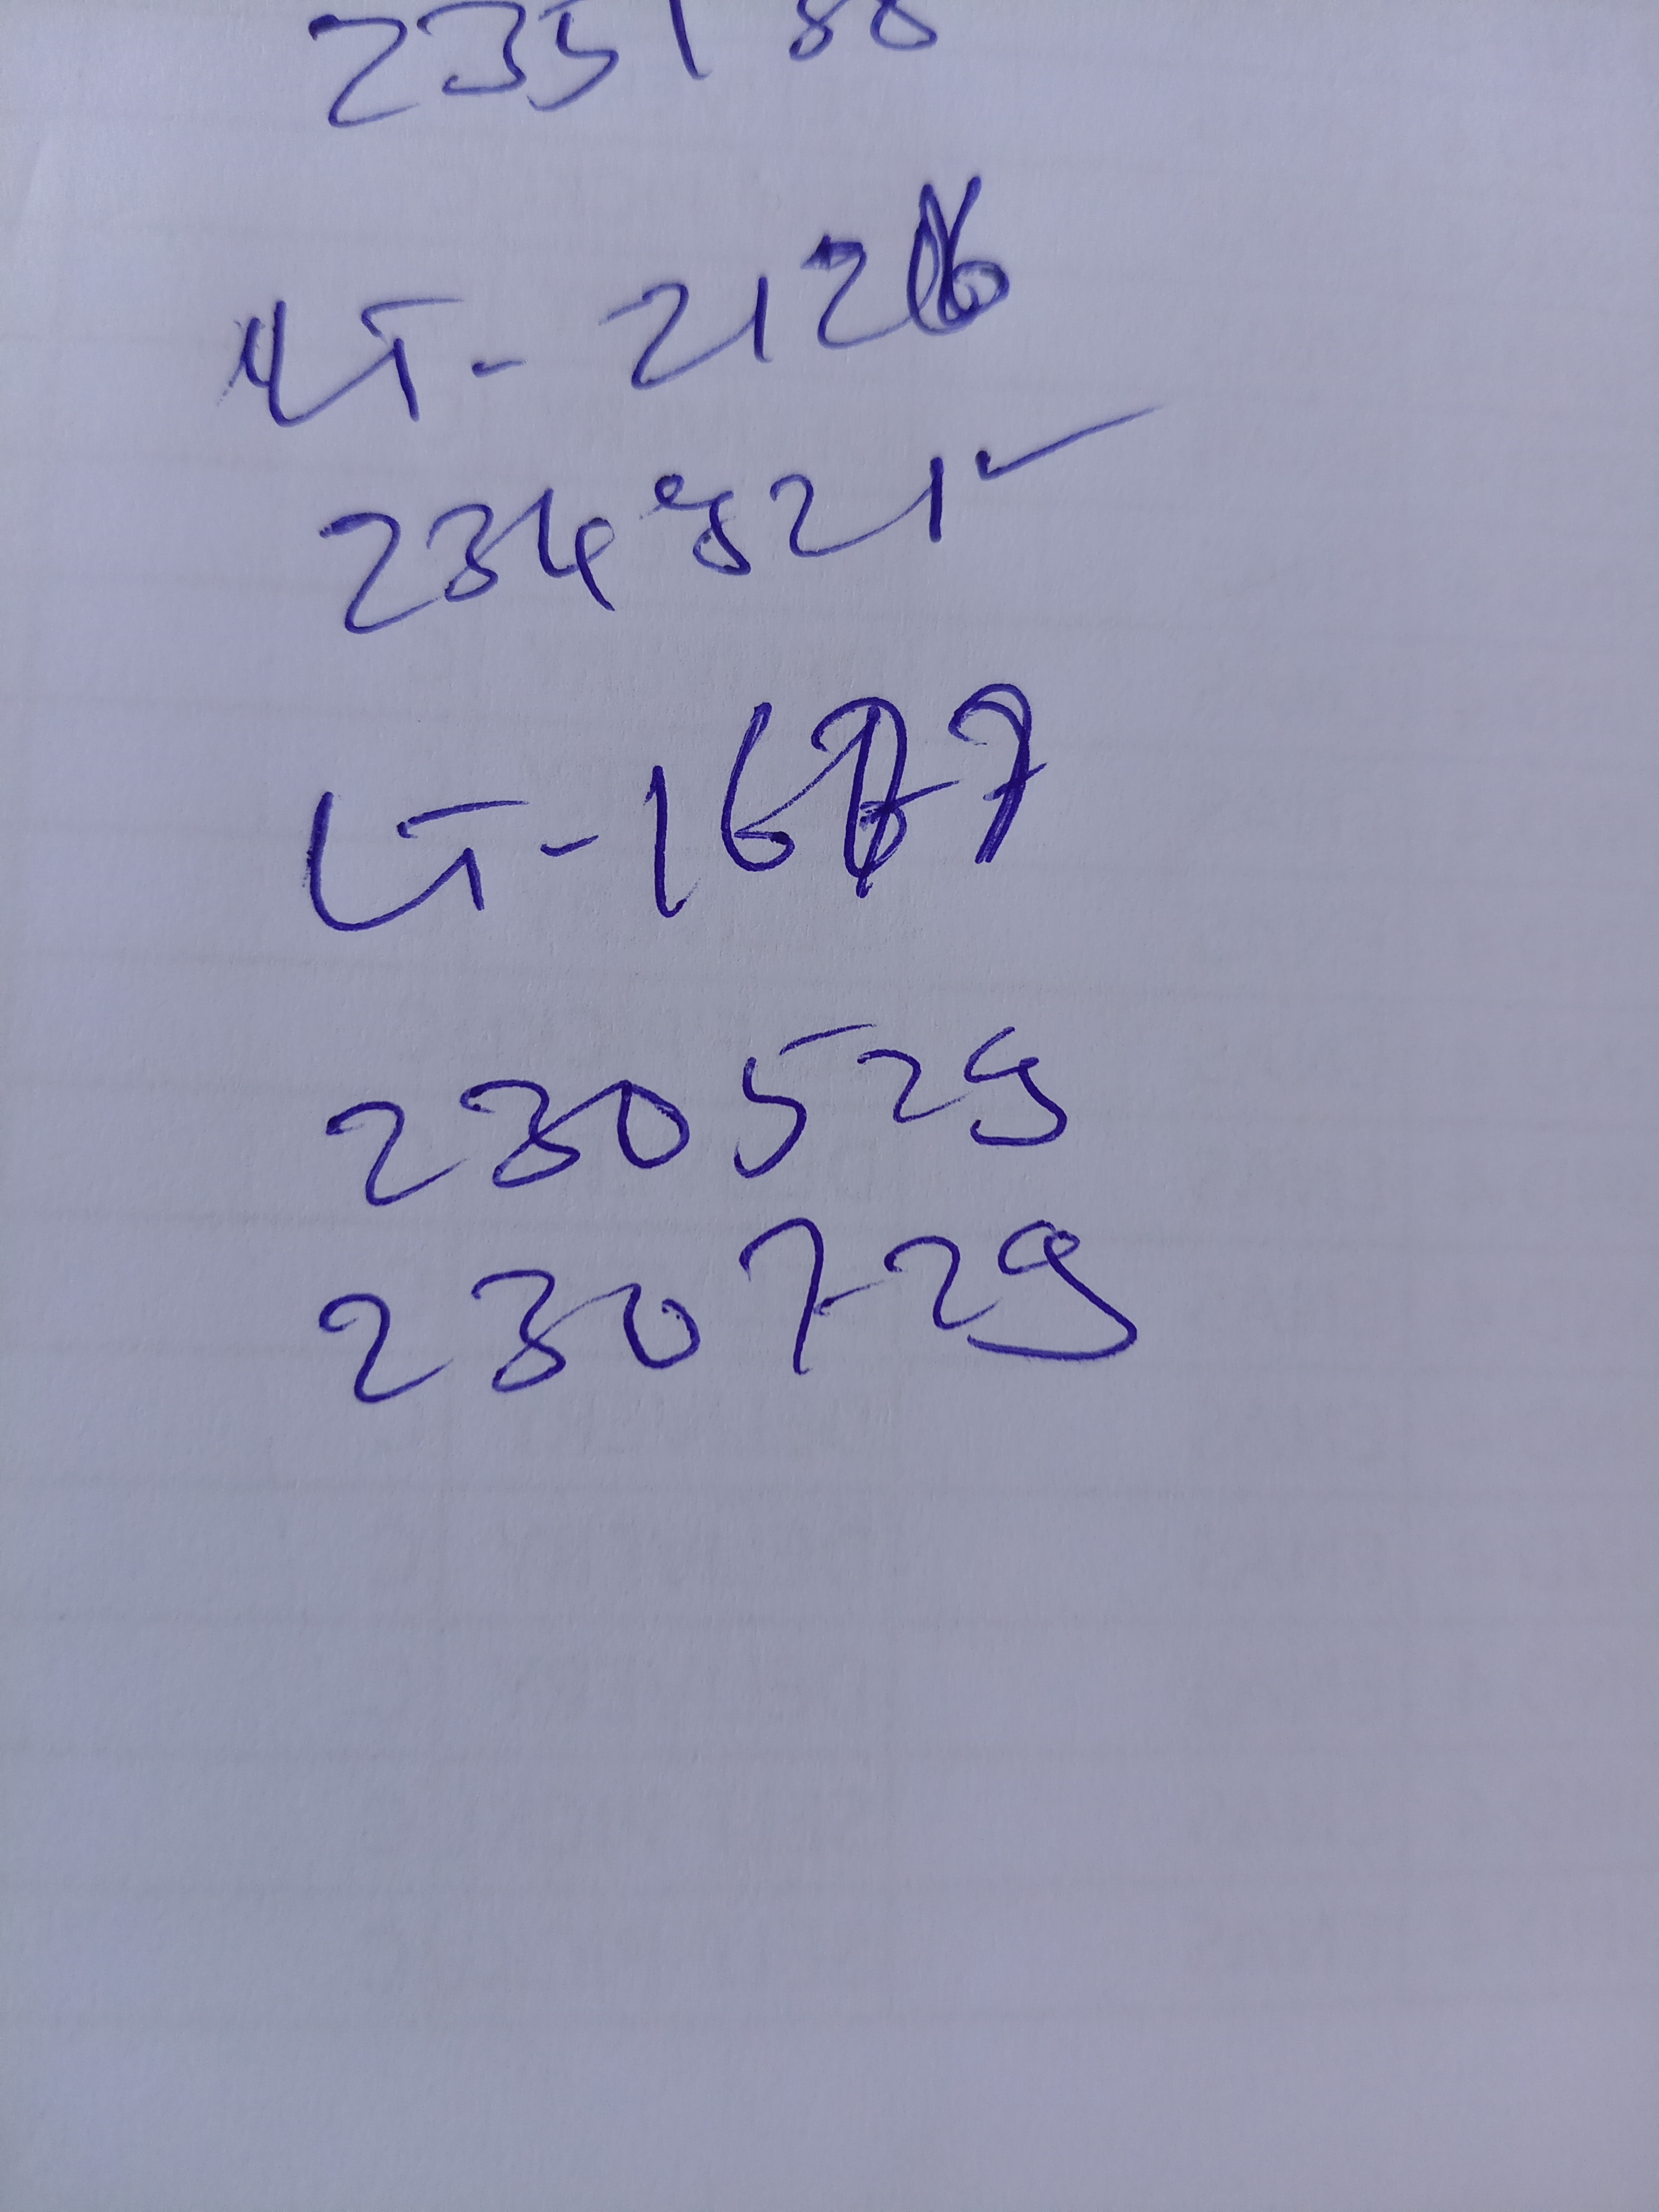 235188
LT-2126
234821
LT-1677
230529
230729